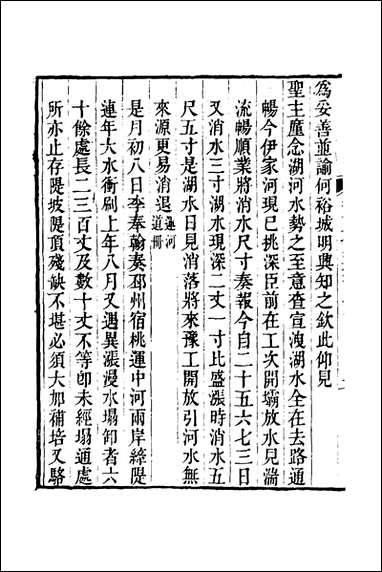 為妥善並諭何裕城明興知之欽此仰見
聖主廑念湖河水勢之至意查宣洩湖水全在去路通
暢今伊家河現已挑深臣前在工次開壩放水見湍
流暢順業將消水尺寸奏報今自二十五六七三日
又消水三寸湖水現深二丈一寸比盛漲時消水五
尺五寸是湖水日見消落將來豫工開放引河水無
來源更易消退運河道冊
是月初八日李奉翰奏邳州宿桃運中河兩岸縴隄
連年大水衝刷上年八月又遇異漲漫水塌卸者六
十餘處長二三百丈及數十丈不等卽未經塌通處
所亦止存隄坡隄頂殘缺不堪必須大加補培又駱